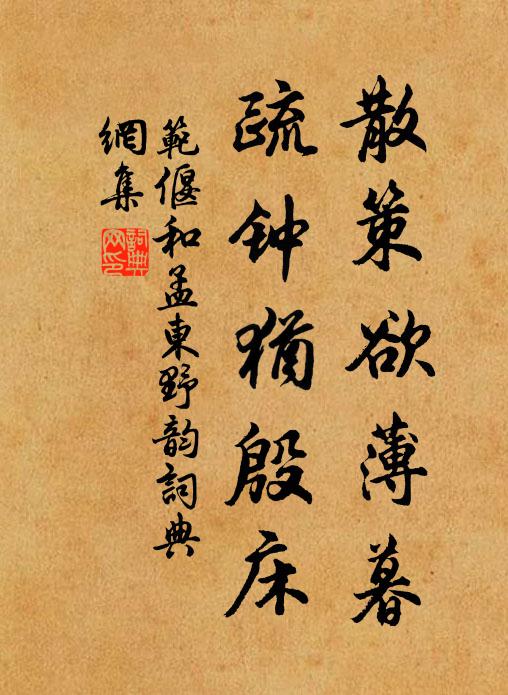 散策欲薄暮
疏钟猶殷床
範偃和孟東野韵詞典
網集
詞典網印